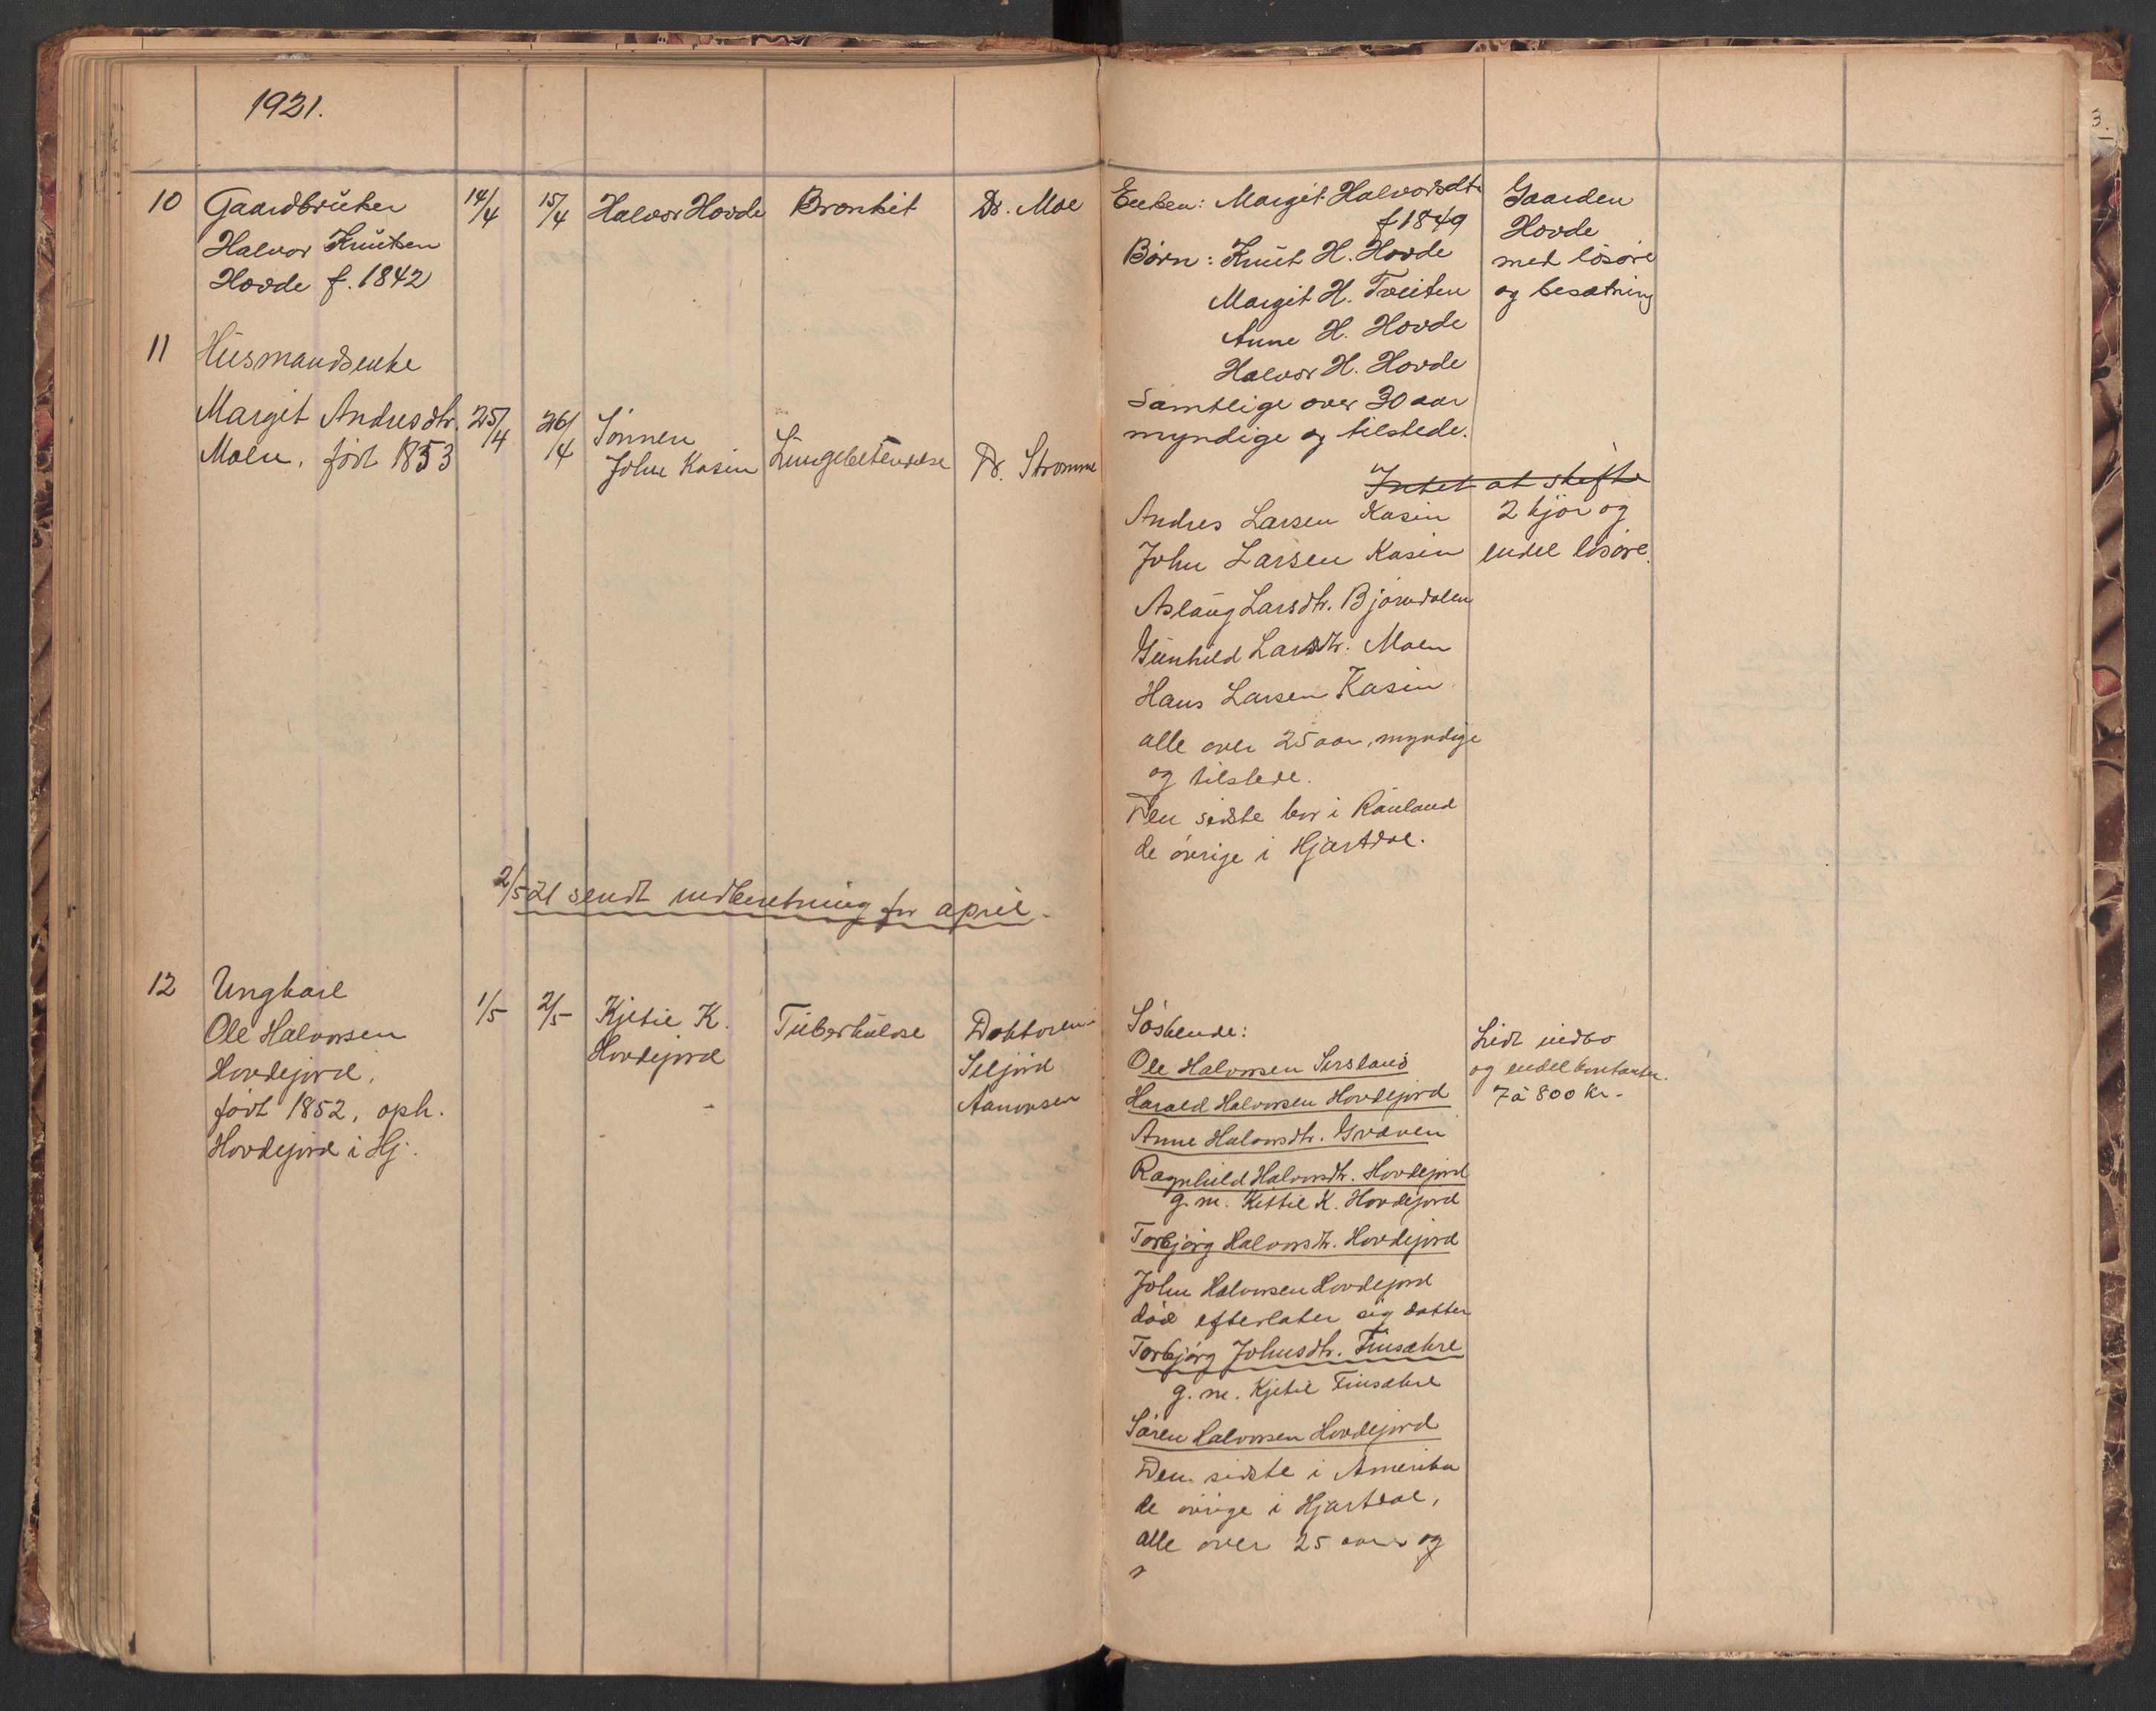 1921.
10 Gaardbruker 14/4 15/4 Halvor Hovde Bronkit Dr. Moe
Halvor Knutsen
Hovde f. 1842
11 Husmandsenke
Margit Andresdtr. 25/4 26/4 Sønnen
Moen, født 1853 John Kasin Lungebetendelse Dr. Strømme
2/5 21 sendt indberetning for april.
12 Ungkarl
Ole Halvorsen 1/5 2/5 Kjetil K. Tuberkulose Doktoren i
Hovdejord, Hovdejord Seljord
født 1852, oph. Aanonsen
Hovdejord i Hj.
3.
Enken: Margit Halvorsdtr Gaarden
f 1849 Hovde
Børn: Knut H. Hovde med løsøre
Margit H. Tveiten og besætning
Anne H. Hovde
Halvor H. Hovde
Samtlige over 30 aar
myndige og tilstede.
Intet at skifte
Andres Larsen Kasin 2 kjør og
John Larsen Kasin endel løsøre.
Aslaug Larsdtr. Bjørndalen
Gunhild Larsdtr. Moen
Hans Larsen Kasin.
alle over 25 aar, myndige
og tilstede.
Den sidste bor i Rauland
de øvrige i Hjartdal.
Søskende: Lidt indbo
Ole Halvorsen og endel kontanter.
Harald Halvorsen Hovdejord 7 à 800 kr.
Anne Halvorsdtr. Graven
Ragnhild Halvorsdtr. Hovdejord
g. m. Kittil K. Hovdejord
Torbjørg Halvorsdtr. Hovdejord
John Halvorsen Hovdejord
død efterlater sig datter
Torbjørg Johnsdtr. Tinsækre
g. m. Kjetil Tinsækre
Søren Halvorsen Hovdejord
Den sidste i Amerika
de øvrige i Hjartdal,
alle over 25 aar og